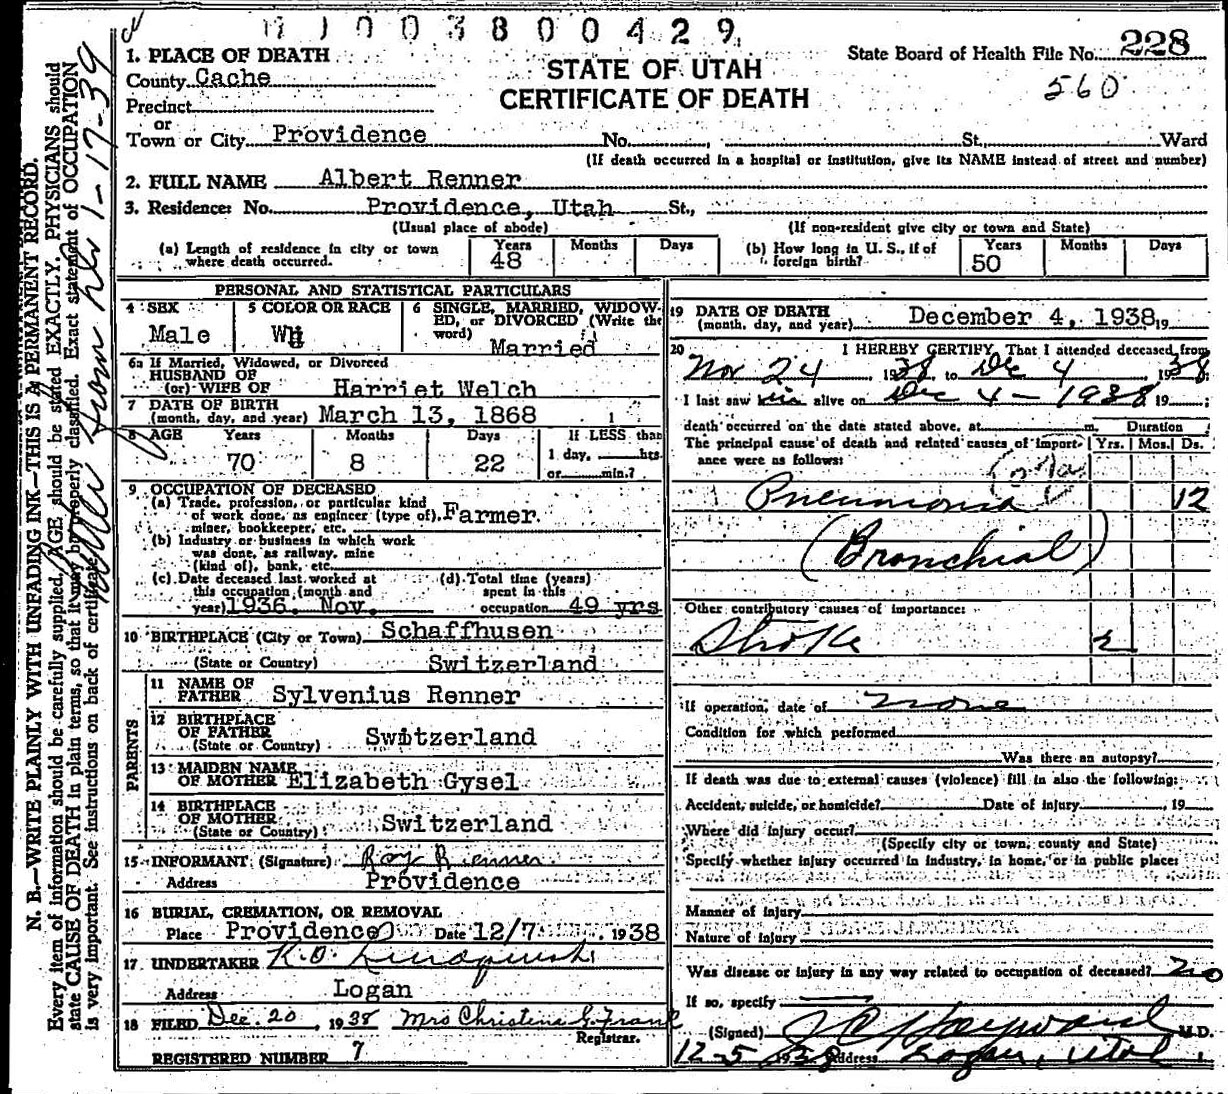 11 1 0 0 3 8 0 0 4 2 9
State Board of Health File No. 228
560
STATE OF UTAH
CERTIFICATE OF DEATH
1. PLACE OF DEATH
County Cache
Precinct
or
Town or City Providence No. , St., Ward
(If death occurred in a hospital or institution, give its NAME instead of street and number)
2. FULL NAME Albert Renner
3. Residence: No. Providence, Utah St.,
(Usual place of abode) (If non-resident give city or town and State)
(a) Length of residence in city or town where death occurred. Years 48 Months Days
(b) How long in U. S., if of foreign birth? Years 50 Months Days
PERSONAL AND STATISTICAL PARTICULARS
4 SEX Male
5 COLOR OR RACE
6 SINGLE, MARRIED, WIDOWED, or DIVORCED (Write the word) Married
6a If Married, Widowed, or Divorced
HUSBAND OF
(or) WIFE OF Harriet Welch
7 DATE OF BIRTH
(month, day, and year) March 13, 1868
8 AGE Years 70 Months 8 Days 22 If LESS than 1 day, hrs. or min.?
9 OCCUPATION OF DECEASED
(a) Trade, profession, or particular kind
of work done, as engineer (type of), Farmer.
miner, bookkeeper, etc.
(b) Industry or business in which work
was done, as railway, mine
(kind of), bank, etc.
(c) Date deceased last worked at
this occupation (month and
year) 1936. Nov.
(d) Total time (years)
spent in this
occupation 49 yrs
10 BIRTHPLACE (City or Town) Schaffhusen
(State or Country) Switzerland
PARENTS
11 NAME OF
FATHER Sylvenius Renner
12 BIRTHPLACE
OF FATHER Switzerland
(State or Country)
13 MAIDEN NAME
OF MOTHER Elizabeth Gysel
14 BIRTHPLACE
OF MOTHER Switzerland
(State or Country)
15 INFORMANT (Signature) Roy Renner
Address Providence
16 BURIAL, CREMATION, OR REMOVAL
Place Providence Date 12/7 1938
17 UNDERTAKER K. O.
Address Logan
18 FILED Dec. 20, 1938 Mrs Christina
Registrar.
REGISTERED NUMBER 7
19 DATE OF DEATH
(month, day, and year) December 4, 1938 19
20 I HEREBY CERTIFY, That I attended deceased from
Nov 24 1938, to Dec 4, 1938
I last saw him alive on Dec 4 - 1938 19 ;
death occurred on the date stated above, at m. Duration
The principal cause of death and related causes of importance were as follows: Yrs. Mos. Ds.
Pneumonia 12
(Bronchial)
Other contributory causes of importance:
Stroke 2
If operation, date of none
Condition for which performed
Was there an autopsy?
If death was due to external causes (violence) fill in also the following:
Accident, suicide, or homicide? Date of injury , 19
Where did injury occur?
(Specify city or town, county and State)
Specify whether injury occurred in industry, in home, or in public place:
Manner of injury
Nature of injury
Was disease or injury in any way related to occupation of deceased? no
If so, specify
(Signed) J C Hayward M.D.
12-5 1938 Address Logan, Utah
N. B.—WRITE PLAINLY WITH UNFADING INK—THIS IS A PERMANENT RECORD.
Every item of information should be carefully supplied. AGE should be stated EXACTLY. PHYSICIANS should
state CAUSE OF DEATH in plain terms, so that it may be properly classified. Exact statement of OCCUPATION
is very important. See instructions on back of certificate.
1-17-39